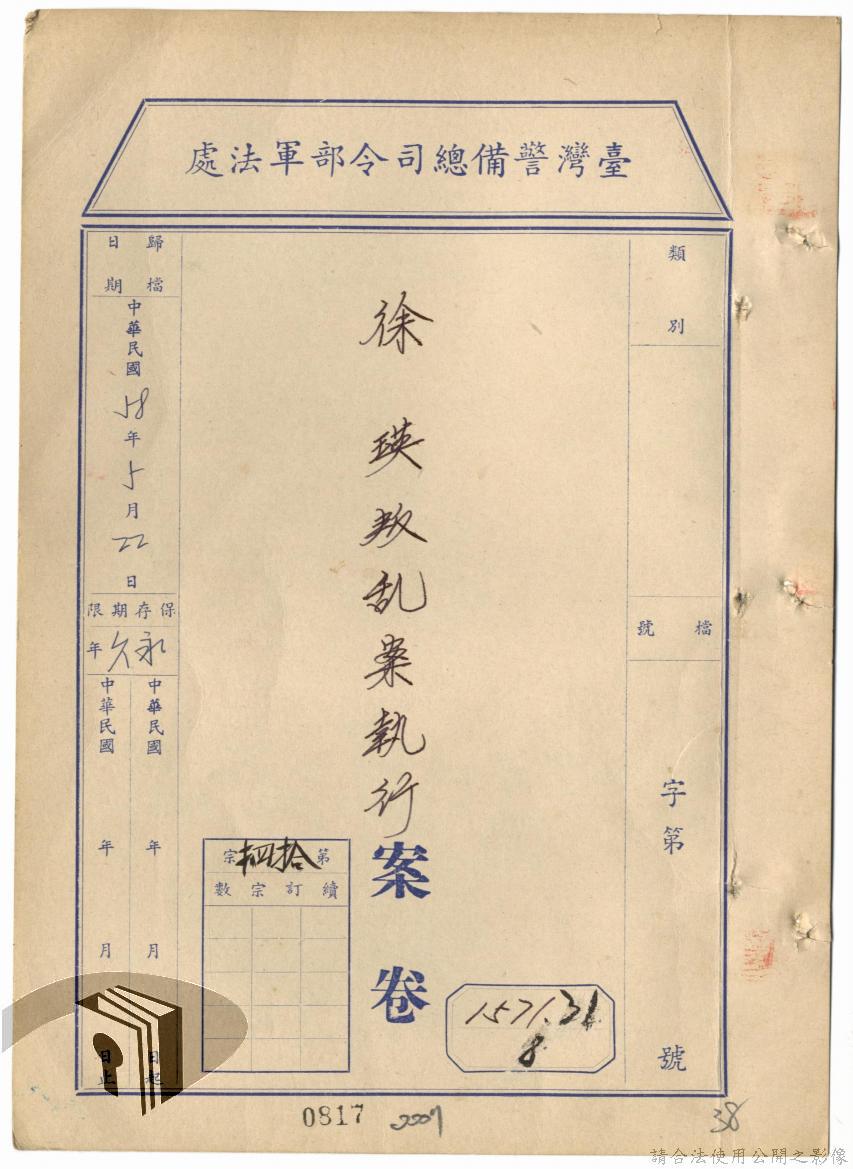 臺灣警備總司令部軍法處
類別
檔號
字第
號
徐瑛叛乱案執行案卷
1571.31
8
第
宗
續訂宗數
歸檔日期
中華民國58年5月22日
保存期限
永久年
中華民國 年 月 日起
中華民國 年 月 日止
0817
38
請合法使用公開之影像